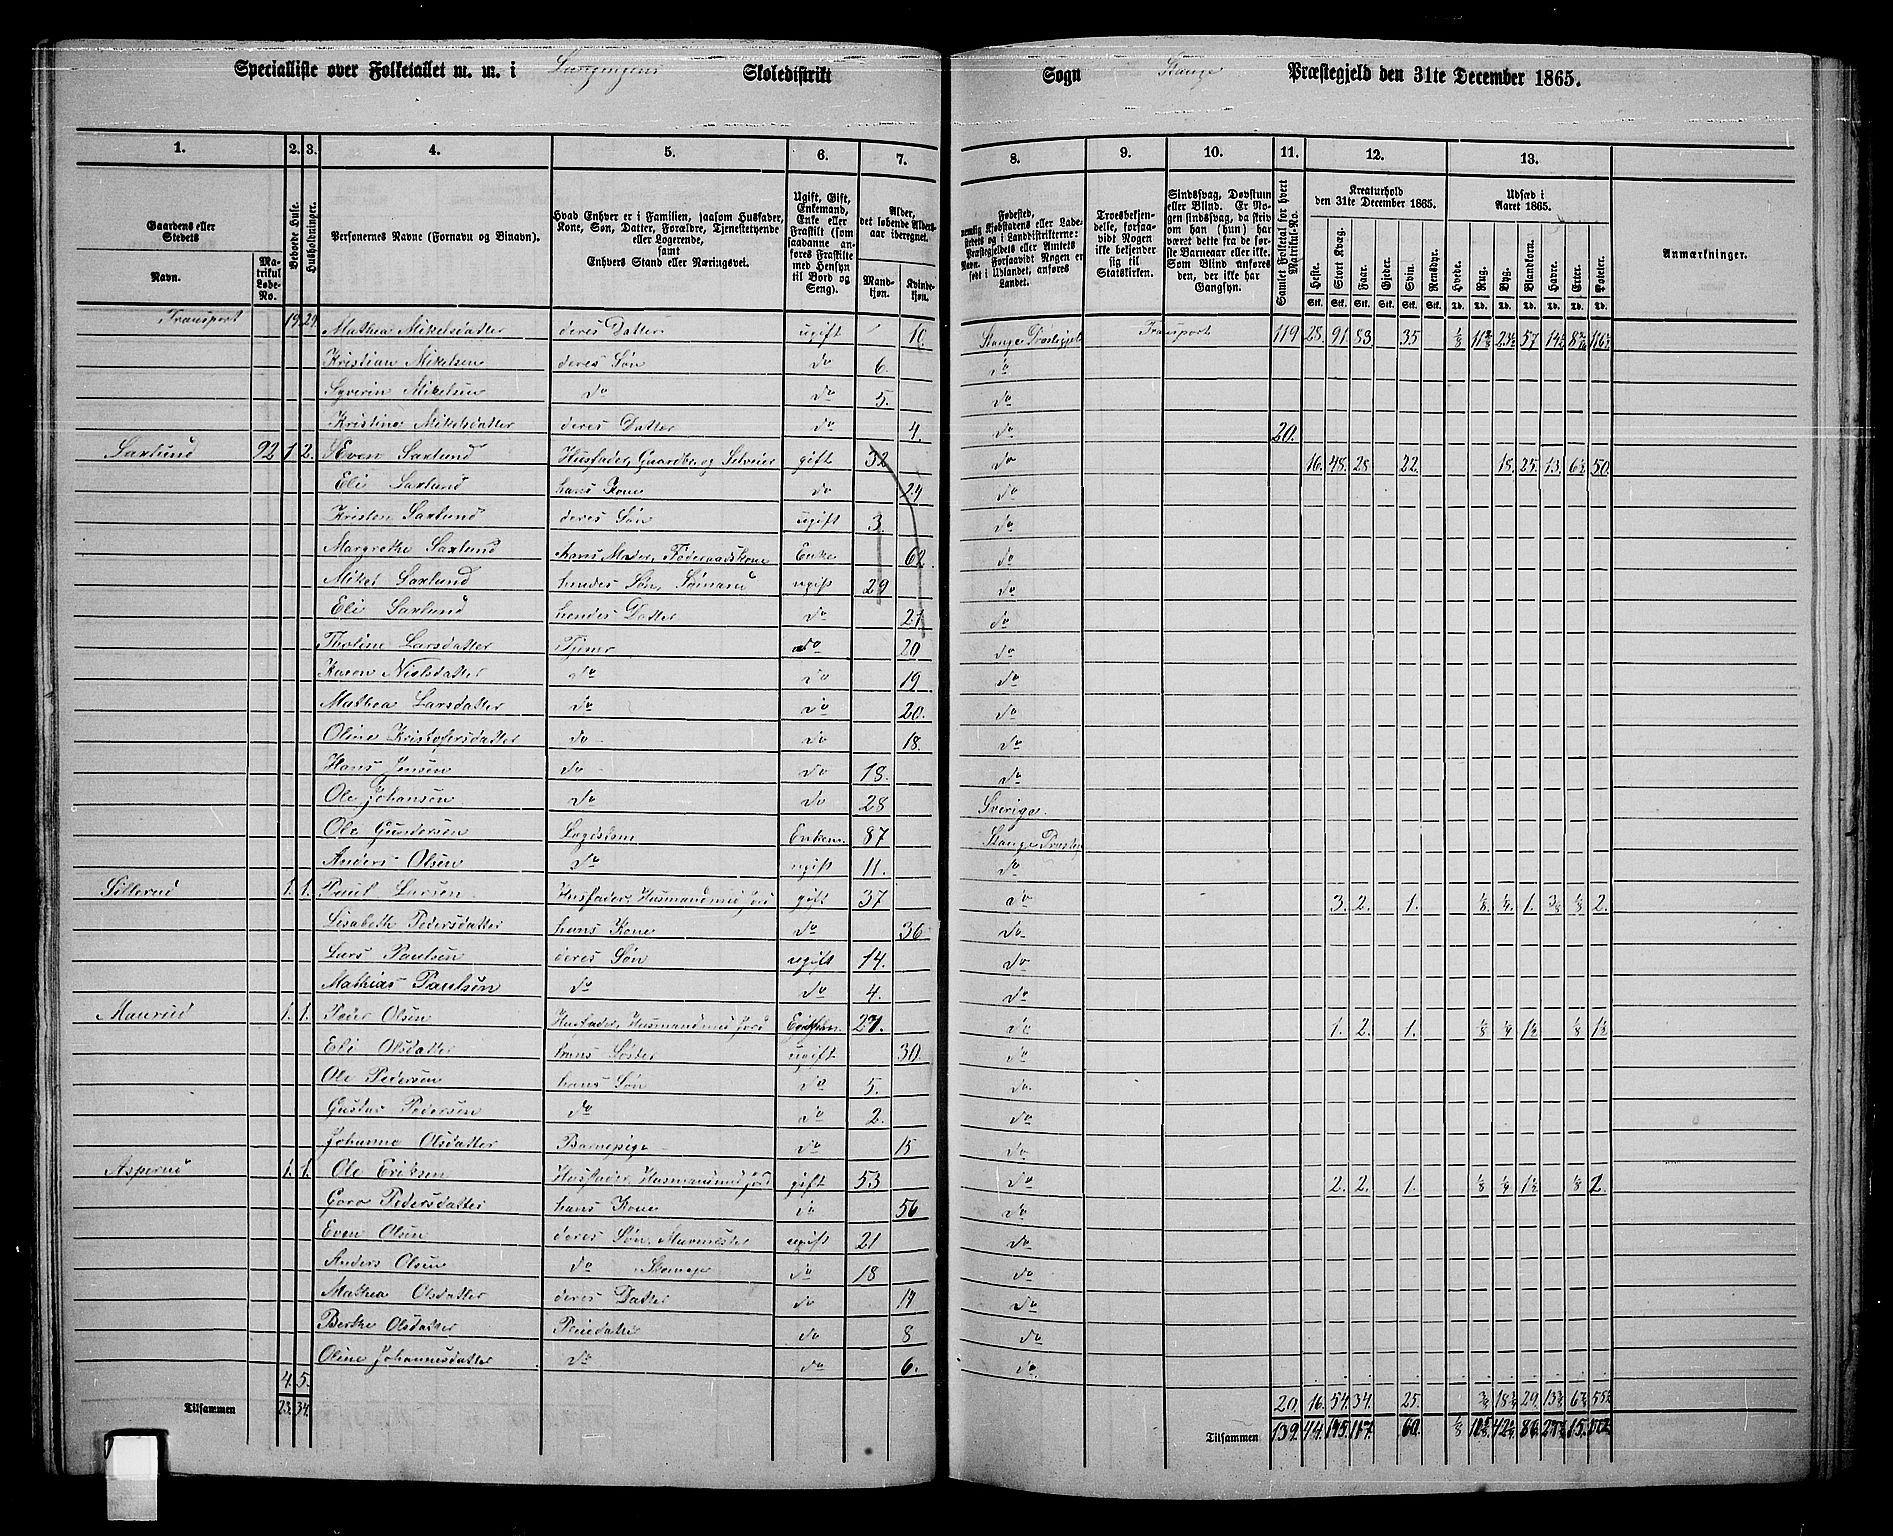 Specialliste over Folketallet m. m. i Skoledistrikt Sogn Stange Præstegjeld den 31te December 1865.
1. 2. 3. 4. 5. 6. 7. 8. 9. 10. 11. 12. 13.
Gaardens eller Stedets
Navn.
Matrikul Løbe-No.
Beboede Huse.
Husholdninger.
Personernes Navne (Fornavn og Binavn).
Hvad Enhver er i Familien, saasom Husfader, Kone, Søn, Datter, Forældre, Tjenestetyende eller Logerende, samt Enhvers Stand eller Næringsvei.
Ugift, Gift, Enkemand, Enke eller Fraskilt (som saadanne anføres Fraskilte med Hensyn til Bord og Seng).
Alder, det løbende Aldersaar iberegnet.
Mandkjøn. Kvindekjøn.
Fødested, nemlig Kjøbstadens eller Ladestedets og i Landdistrikterne: Præstegjeldets eller Amtets Navn. Forsaavidt Nogen er født i Udlandet, anføres Landet.
Troesbekjendelse, forsaavidt Nogen ikke bekjender sig til Statskirken.
Sindssvag, Døvstum eller Blind. Er Nogen sindssvag, da skriv om han (hun) har været dette fra de første Barneaar eller ikke. Som Blind anføres den, der ikke har Gangsyn.
Samlet Folketal for hvert Matrikul-No.
Kreaturhold den 31te December 1865.
Heste. Stort Kvæg. Faar. Gjeder. Svin. Rensdyr.
Udsæd i Aaret 1865.
Hvede. Rug. Byg. Blandkorn. Havre. Erter. Poteter.
Anmærkninger.
Transport 19. 29. Mathea Mikelsdatter deres Datter ugift 10. Stange Præstegjeld Transport 119 28. 91. 83. 35
Kristian Mikelsen deres Søn do 6. do
Syverin Mikelsen do do 5. do
Kristine Mikelsdatter deres Datter do 4. do 20.
Saxlund 92 1 2. Even Saxlund Husfader, Gaardbr. og Selveier gift 32 do 16. 48. 28 22. 18. 25. 13. 6½ 50.
Eli Saxlund hans Kone do 24 do
Kristen Saxlund deres Søn ugift 3 do
Margrethe Saxlund hans Moder, Føderaadskone Enke 62. do
Mikel Saxlund hendes Søn, Sømand ugift 29 do
Eli Saxlund hendes Datter do 21. do
Tholine Larsdatter Tjener do 20 do
Karen Nielsdatter do do 19 do
Mathea Larsdatter do do 20. do
Oline Kristofersdatter do do 18. do
Hans Jensen do do 18. do
Ole Johansen do do 28 Sverige.
Ole Gundersen Logislem Enkem. 87 Stange Præsteg
Anders Olsen do ugift 11. do
Sillerud 1. 1. Paul Larsen Husfader, Husmand med Jord gift 37 do 3. 2. 1. ⅛ ¼ 1. ⅜ ⅛ 2.
Lisabeth Pedersdatter hans Kone do 36 do
Lars Paulsen deres Søn ugift 14. do
Mathias Paulsen do do 4. do
Maurud 1. 1. Peder Olsen Husfader, Husmand med Jord 27. do 1. 2. 1. ⅛ ¼ 1½ ⅛ 1½
Eli Olsdatter hans Søster ugift 30. do
Ole Pedersen hans Søn do 5. do
Gustav Pedersen do do 2. do
Johanne Olsdatter Barnepige do 15 do
Asperud 1. 1. Ole Eriksen Husfader, Husmand med Jord gift 53 do 2. 2. 1. ⅛ ¼ 1½ ⅛ 2.
Goro Pedersdatter hans Kone do 56 do
Even Olsen deres Søn, Murmester ugift 21 do
Anders Olsen do Skomager do 18 do
Mathea Olsdatter deres Datter do 14 do
Berthe Olsdatter Pleiedatter do 8 do
Oline Johannesdatter do do 6. do
4. 5. 20. 16. 54. 34. 25.
Tilsammen 23. 34. Tilsammen 139. 44. 145. 117. 60.